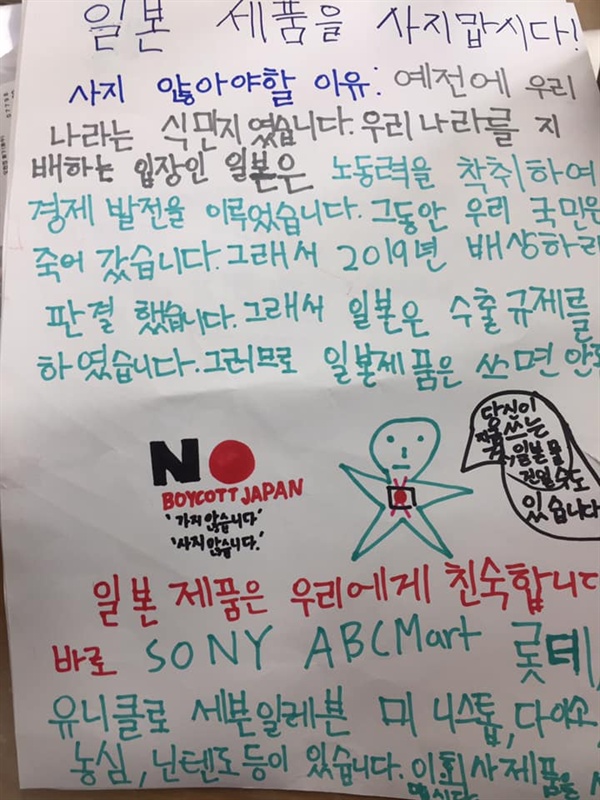 일본 제품을 사지맙시다!
사지 않아야할 이유: 예전에 우리
나라는 식민지였습니다. 우리나라를 지
배하는 입장인 일본은 노동력을 착취하여
경제 발전을 이루었습니다. 그동안 우리 국민은
죽어 갔습니다. 그래서 2019년 배상하라
판결 했습니다. 그래서 일본은 수출규제를
하였습니다. 그러므로 일본제품은 쓰면 안
NO
BOYCOTT JAPAN
'가지 않습니다'
'사지 않습니다.'
당신이
쓰는
일본물
건일수도
있습니다
일본 제품은 우리에게 친숙합니다
바로 SONY ABCMart 롯데,
유니클로 세븐일레븐 미니스톱, 다이소
농심, 닌텐도 등이 있습니다. 이회사제품은
맙시다